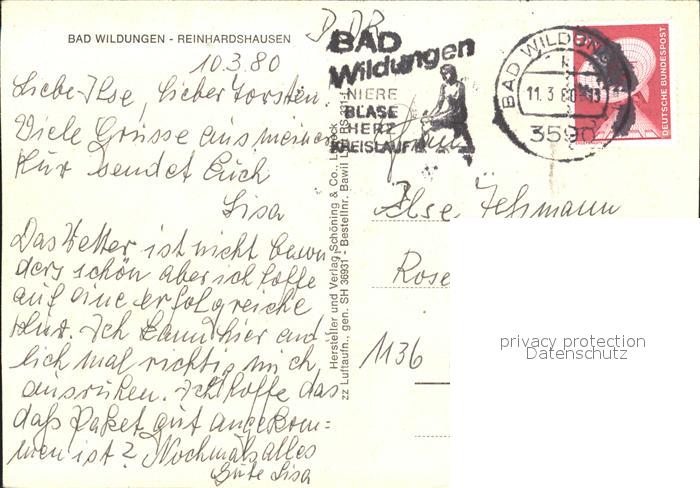 BAD WILDUNGEN - REINHARDSHAUSEN
10.3.80
Liebe Ilse, lieber Torsten.
Viele Grüsse aus meiner
Kur sendet Euch
Lisa
Das Wetter ist nicht beson
ders schön aber ich hoffe
auf eine erfolgreiche
Kur. Ich kann hier end
lich mal richtig mich
ausruhen. Ich hoffe das
daß Paket gut angekom-
men ist? Nochmals alles
Gute Lisa
Hersteller und Verlag Schöning & Co., Lübeck
zz Luftaufn., gen. SH 36931 - Bestellnr. Bawil
DDR
BAD
Wildungen
NIERE
BLASE
HERZ
KREISLAUF
BAD WILDUNGEN
11.3.80
3590
DEUTSCHE BUNDESPOST
Ilse
Rose
1136
privacy protection
Datenschutz